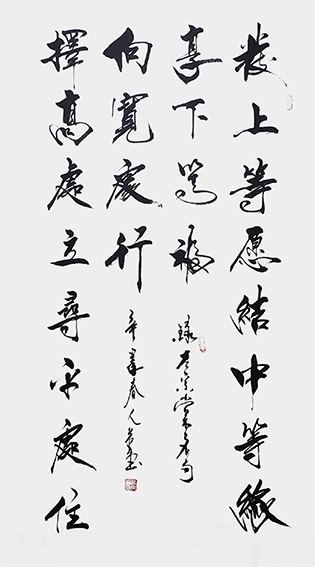 發上等愿結中等緣
享下等福
錄左宗棠名句
擇高處立尋平處住
向寬處行